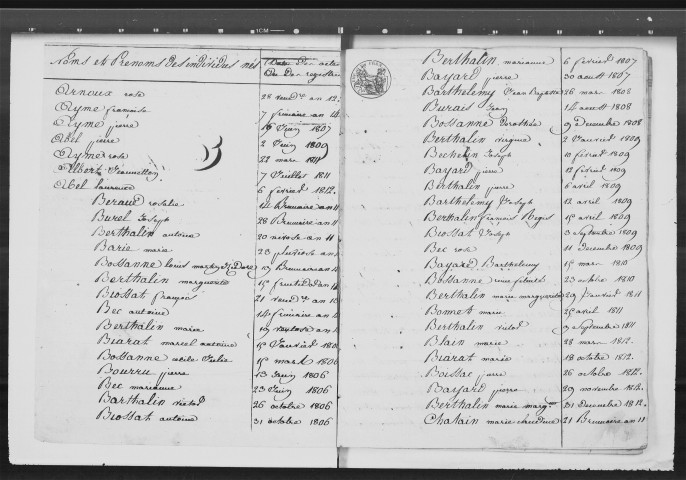 Noms et Prenoms des individus nés Date des actes
ou des registres
Arnoux rose 28 vend.re an 12
Ayme françoise 7 frimaire an 14
Ayme pierre 19 Juin 1807
Abel pierre 2 Juin 1809
Ayme rose 22 mars 1811
Albert Jeannetton 7 Juillet 1811
Abel laurence 6 février 1812
B
Beraud rosalie 14 Brumaire an 11
Burel Joseph 28 Brumaire an 11
Berthalin antoine 20 nivose an 11
Barie marie 23 pluviose an
Bossanne louis 19 Brumaire an
Berthalin marguerite 15 fructidor an
Biossat françois 21 vend.re an
Bec antoine 14 frimaire an
Berthalin marie 19 ventose an
Biarat marcel antoine 15 Janvier 180
Bossanne Julie 15 mars 1806
Bourru pierre 13 Juin 1806
Bec marianne 23 Juin 1806
Barthalin victor 26 octobre 1806
Biossat antoine 31 octobre 1806
Berthalin marianne 6 février 1807
Bayard pierre 30 aoust 1807
Barthelemy Jean 26 mars 1808
Burais Jean 14 aoust 1808
Bossanne Dorothée 9 décembre 1808
Berthalin virginie 2 Janvier 1809
Bechelin Joseph 10 février 1809
Bayard pierre 12 février 1809
Berthalin pierre 6 avril 1809
Barthelemy Joseph 12 avril 1809
Berthalin françois Regis 15 avril 1809
Biossat Joseph 3 septembre 1809
Bec rose 11 décembre 1809
Bayard Barthelemy 15 mars 1810
Bossanne 23 octobre 1810
Berthalin marie marguerite 29 Janvier 1811
Bonnet marie 25 avril 1811
Berthalin victor 9 septembre 1811
Blain marie 28 mars 1812
Biarat marie 18 octobre 1812
Boissac pierre 26 octobre 1812
Bayard pierre 29 novembre 1812
Berthalin marie marg.te 31 décembre 1812
Chalain marie 21 Brumaire an 11